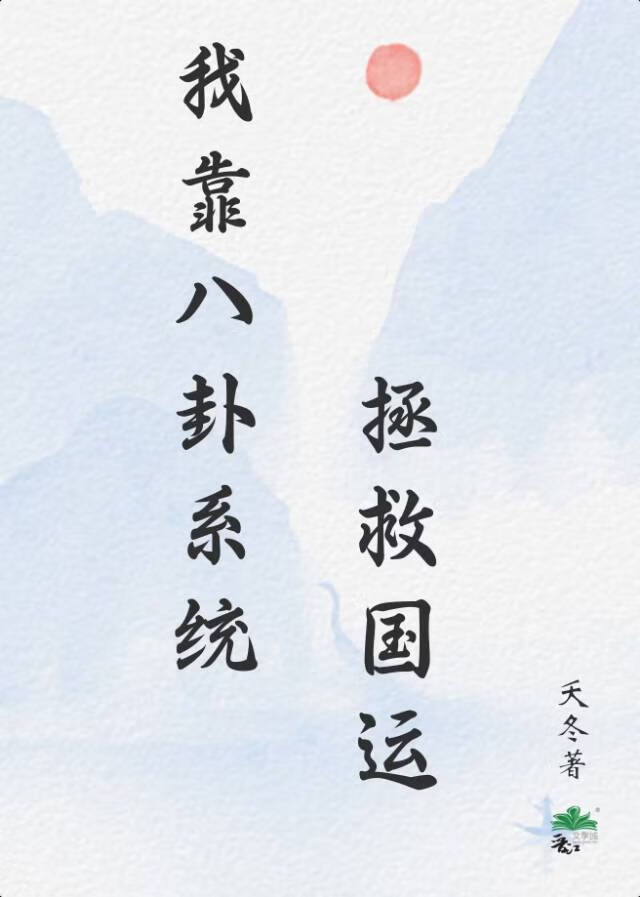 我靠八卦系统
拯救国运
天冬著
晋江
文学城